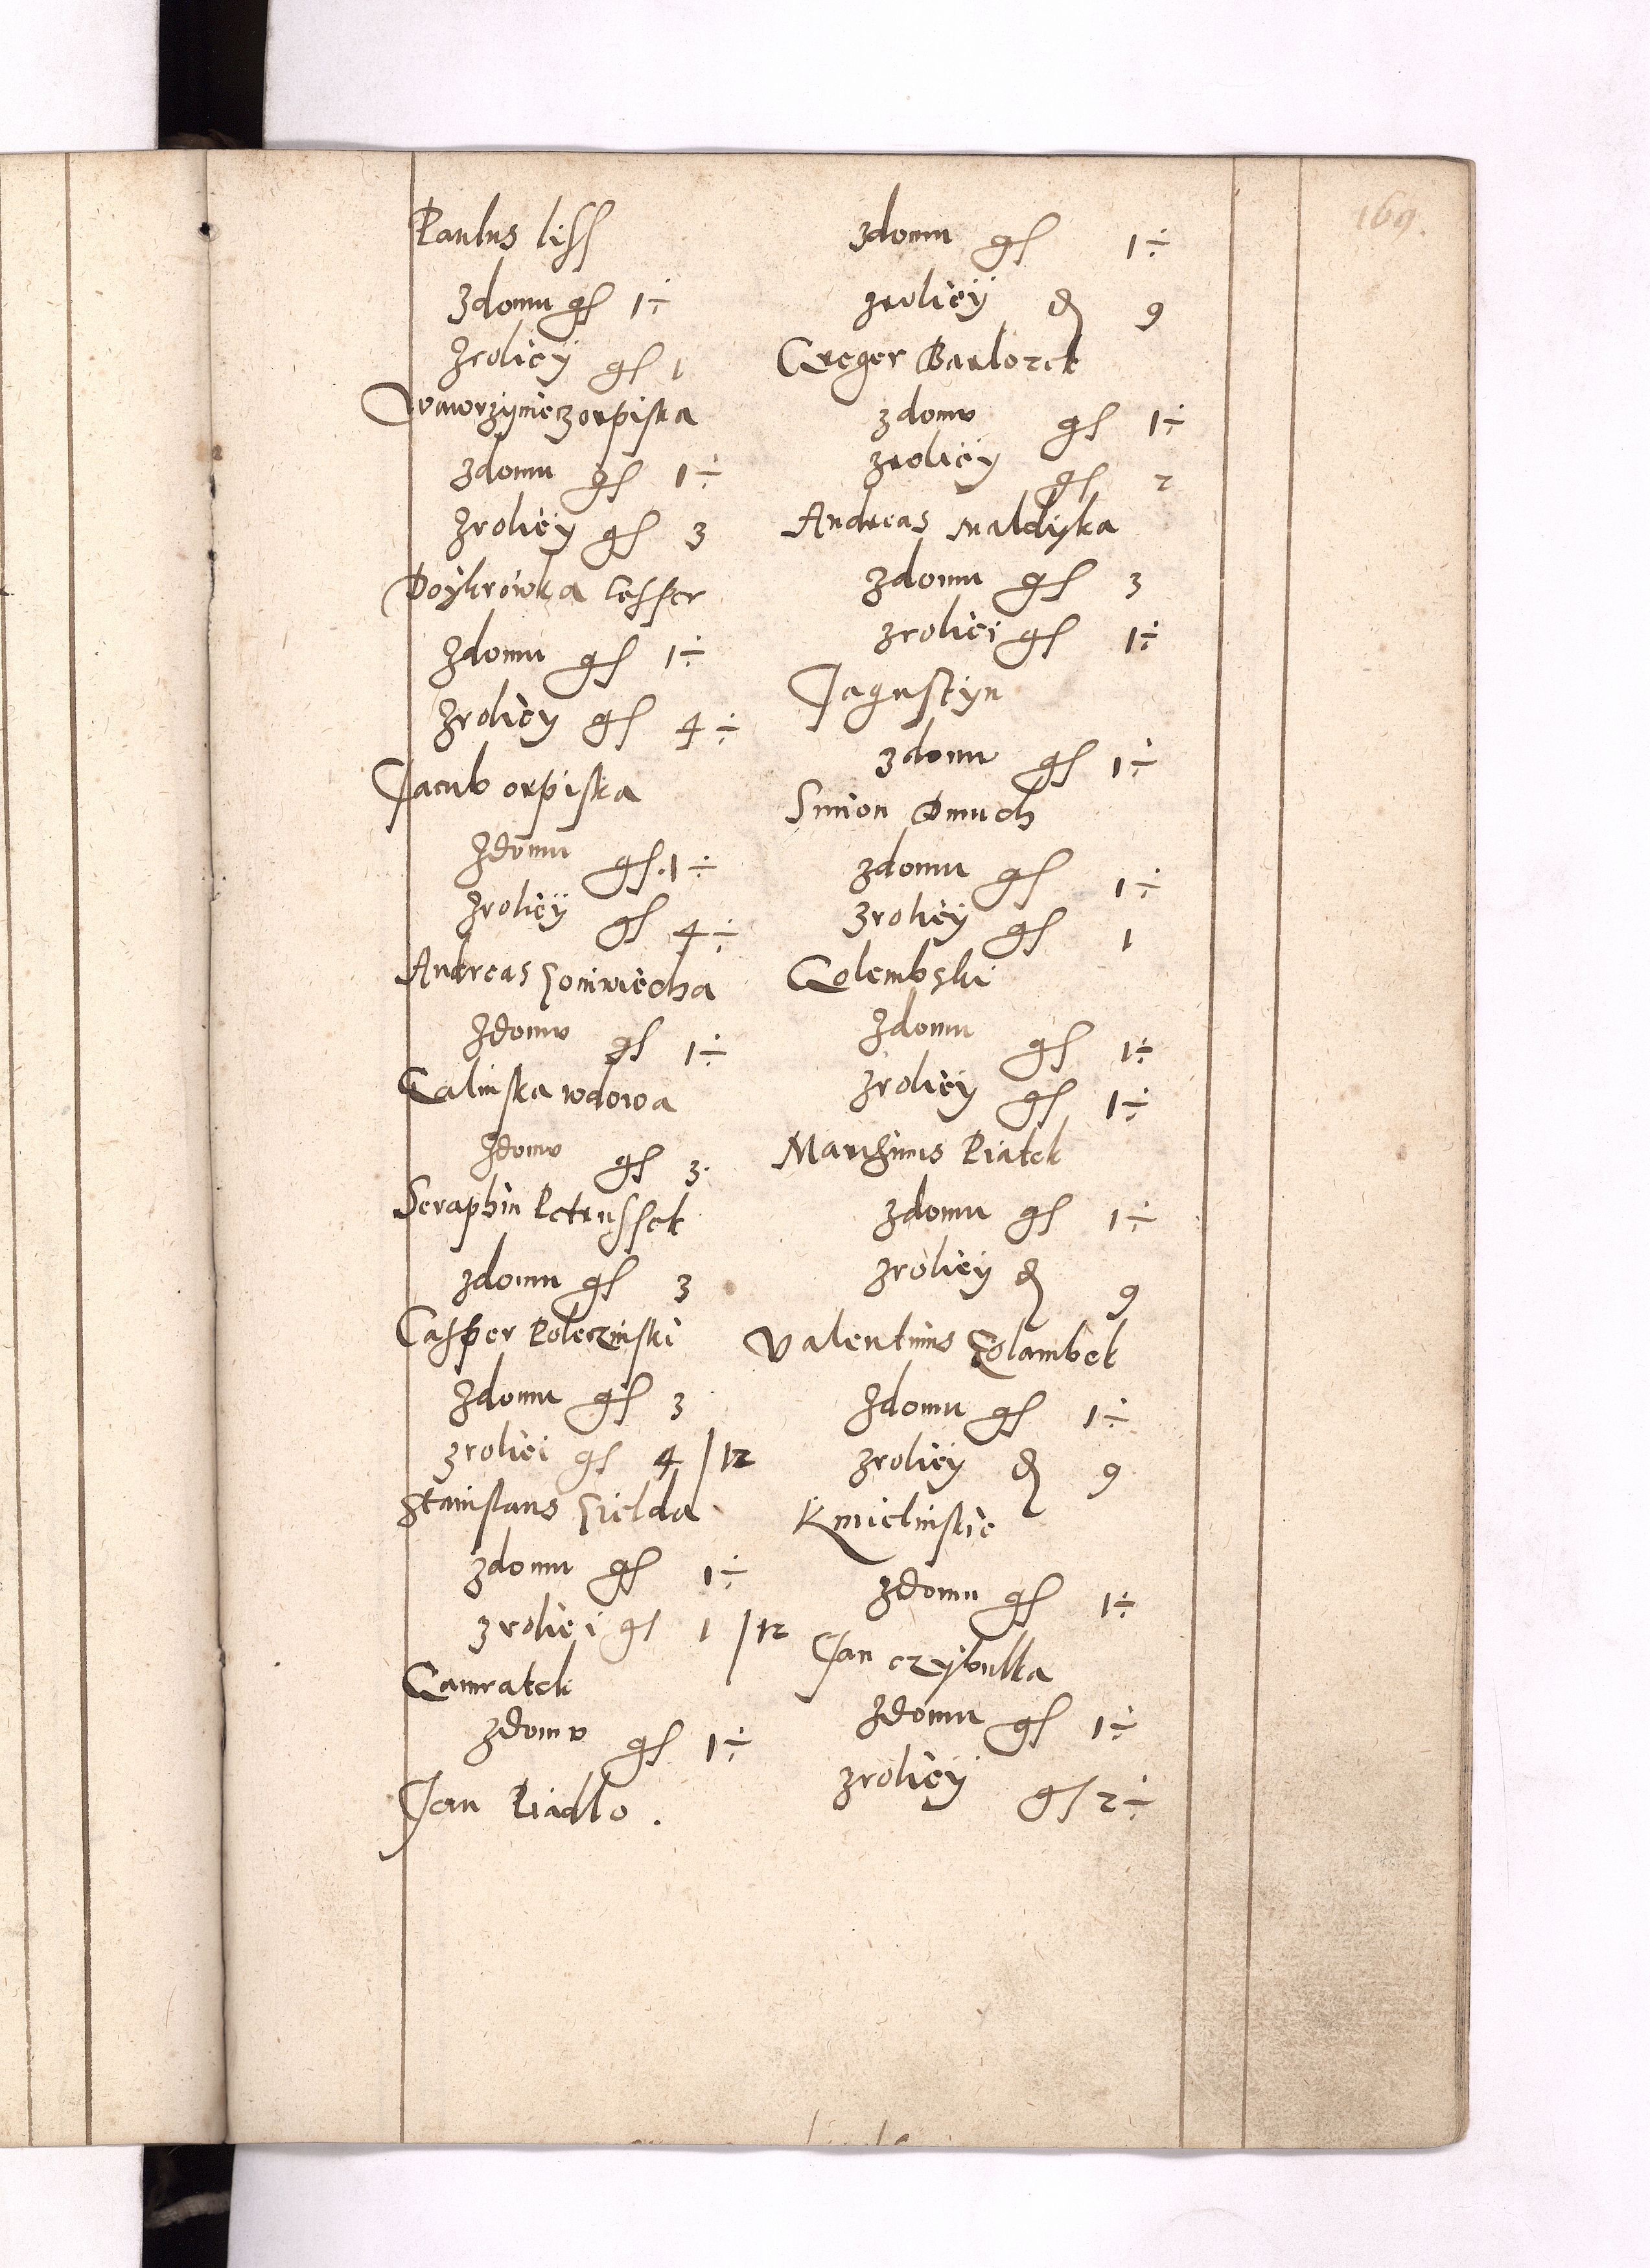 169.
Paulus liss
zdomu gs 1÷
zroliey gs 1
Wawrzyniec zorpiska
zdomu gs 1÷
zroliey gs 3
Boykrowka Cesser
zdomu gs 1÷
zroliey gs 4÷
Jacub orpiska
zdomu gs. 1÷
zroliey gs 4÷
Andreas
zdomv gs 1÷
Galinska wdowa
zdomv gs 3.
Seraphin Petrussek
zdomu gs 3
Casper Poleczinski
zdomu gs 3
zroliei gs 4 / 12
Stanislaus
zdomu gs 1÷
zroliei gs 1 / 12
Gamratek
zdomv gs 1÷
Jan Piadlo .
zdomu gs 1÷
zroliey ₰ 9
Greger Barlozek
zdomv gs 1÷
zroliey gs 2
Andreas maldiyka
zdomu gs 3
zroliei gs 1÷
Jagustyn
zdomu gs 1÷
Simon Dmuch
zdomu gs 1÷
zroliey gs 1
Golembski
zdomu gs 1÷
zroliey gs 1÷
Piatek
zdomu gs 1÷
zroliey ₰ 9
Valentinus Golambek
zdomu gs 1÷
zroliey ₰ 9
Kmielinskie
zdomu gs 1÷
Jan czybulka
zdomu gs 1÷
zroliey gs 2÷